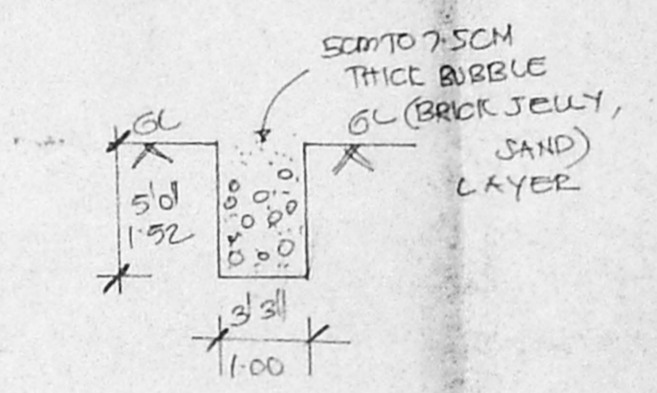 5CM TO 7.5CM
THICK BUBBLE
(BRICK JELLY,
SAND)
LAYER
GL
GL
5'0"
1.52
3'3"
1.00